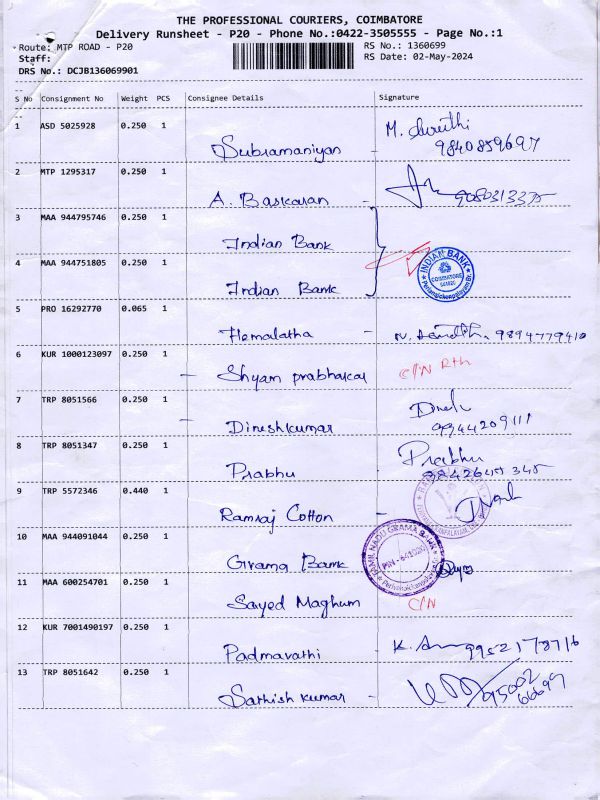 THE PROFESSIONAL COURIERS, COIMBATORE
Delivery Runsheet - P20 - Phone No.:0422-3505555 - Page No.:1
Route: MTP ROAD - P20 RS No.: 1360699
Staff: RS Date: 02-May-2024
DRS No.: DCJB136069901
S No Consignment No Weight PCS Consignee Details Signature
1 ASD 5025928 0.250 1 Subramaniyan M. 9840859697
2 MTP 1295317 0.250 1 A. Baskaran - 9080313375
3 MAA 944795746 0.250 1 Indian Bank
4 MAA 944751805 0.250 1 Indian Bank INDIAN BANK COIMBATORE 641020
5 PRO 16292770 0.065 1 Hemalatha - 9894779410
6 KUR 1000123097 0.250 1 - Shyam prabhakar C/N Rth
7 TRP 8051566 0.250 1 - Dineshkumar 9944209111
8 TRP 8051347 0.250 1 Prabhu - Prabhu 9842645345
9 TRP 5572346 0.440 1 Ramraj Cotton -
10 MAA 944091044 0.250 1 Grama Bank TAMIL NADU GRAMA BANK
11 MAA 600254701 0.250 1 Sayed Maghum C/N
12 KUR 7001490197 0.250 1 Padmavathi - K. 9952178716
13 TRP 8051642 0.250 1 Sathish kumar - 95002
66699